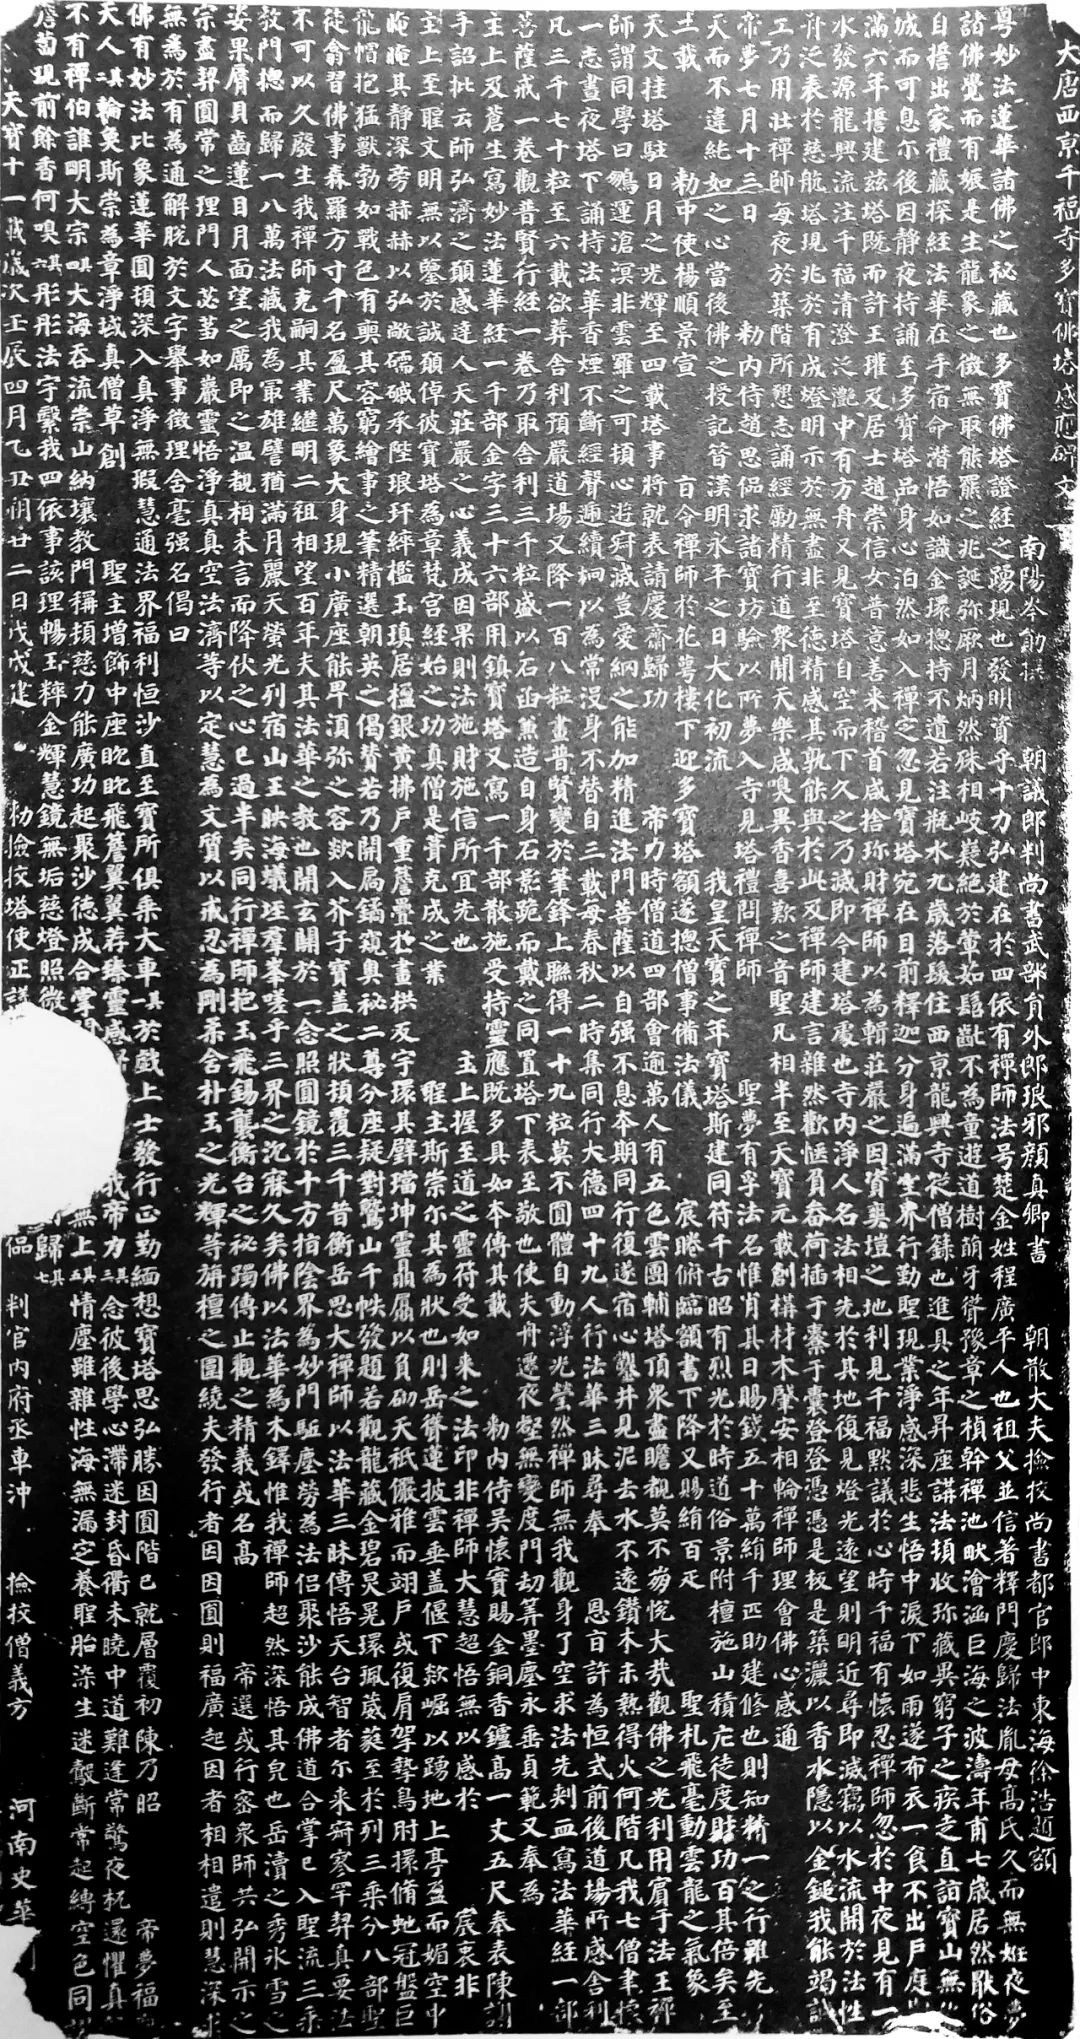 大唐西京千福寺多寶佛塔感應碑文
南陽岑勛撰 朝議郎判尚書武部員外郎琅邪顏真卿書 朝散大夫撿挍尚書都官郎中東海徐浩題額
粤妙法蓮華諸佛之秘藏也多寶佛塔證經之踴現也發明資乎十力弘建在於四依有禪師法号楚金姓程廣平人也祖父並信著釋門慶歸法胤母高氏久而無妊夜夢
諸佛覺而有娠是生龍象之徵無取熊羆之兆誕弥厥月炳然殊相岐嶷絶於葷茹髫齔不為童遊道樹萌牙聳豫章之楨幹禪池畎澮涵巨海之波濤年甫七歲居然猒俗
自誓出家禮藏探經法華在手宿命潛悟如識金環揔持不遺若注瓶水九歲落髮住西京龍興寺從僧籙也進具之年昇座講法頓收珎藏異窮子之疾走直詣寶山無化
城而可息尒後因靜夜持誦至多寶塔品身心泊然如入禪定忽見寶塔宛在目前釋迦分身遍滿空界行勤聖現業淨感深悲生悟中淚下如雨遂布衣一食不出戶庭
滿六年誓建茲塔既而許王瓘及居士趙崇信女普意善来稽首咸捨珎財禪師以為輯莊嚴之因資爽塏之地利見千福默議於心時千福有懷忍禪師忽於中夜見有一
水發源龍興流注千福清澄泛灩中有方舟又見寶塔自空而下久之乃滅即今建塔處也寺內淨人名法相先於其地復見燈光遠望則明近尋即滅竊以水流開於法性
舟泛表於慈航塔現兆於有成燈明示於無盡非至德精感其孰能與於此及禪師建言雜然歡愜負畚荷插于橐于囊登登憑憑是板是築灑以香水隱以金鎚我能竭誠
工乃用壯禪師每夜於築階所懇志誦經勵精行道衆聞天樂咸嗅異香喜歎之音聖凡相半至天寶元載創構材木肇安相輪禪師理會佛心感通
帝夢七月十三日 勅内侍趙思偘求諸寶坊驗以所夢入寺見塔禮問禪師 聖夢有孚法名惟肖其日賜錢五十萬絹千匹助建修也則知精一之行雖先
天而不違純如之心當後佛之授記昔漢明永平之日大化初流 我皇天寶之年寶塔斯建同符千古昭有烈光於時道俗景附檀施山積庀徒度財功百其倍矣至
二載 勅中使楊順景宣 旨令禪師於花萼樓下迎多寶塔額遂揔僧事俻法儀 宸睠俯臨額書下降又賜絹百疋 聖札飛毫動雲龍之氣象
天文挂塔駐日月之光輝至四載塔事將就表請慶齋歸功 帝力時僧道四部會逾萬人有五色雲團輔塔頂衆盡瞻覩莫不崩悅大哉觀佛之光利用賓于法王禪
師謂同學曰鵬運滄溟非雲羅之可頓心遊寂滅豈愛網之能加精進法門菩薩以自强不息夲期同行復遂宿心鑿井見泥去水不遠鑽木未熱得火何階凡我七僧聿懷
一志晝夜塔下誦持法華香煙不斷經聲遞續炯以為常没身不替自三載每春秋二時集同行大德四十九人行法華三昧尋奉 恩旨許為恒式前後道場所感舍利
凡三千七十粒至六載欲葬舍利預嚴道場又降一百八粒畫普賢變於筆鋒上聯得一十九粒莫不圓體自動浮光瑩然禪師無我觀身了空求法先刺血寫法華經一部
菩薩戒一卷觀普賢行經一卷乃取舍利三千粒盛以石函兼造自身石影跪而戴之同置塔下表至敬也使夫舟遷夜壑無變度門劫算墨塵永垂貞範又奉為
主上及蒼生寫妙法蓮華經一千部金字三十六部用鎮寶塔又寫一千部散施受持靈應既多具如本傳其載 勅内侍吴懷實賜金銅香鑪高一丈五尺奉表陳謝
手詔批云師弘濟之願感達人天莊嚴之心義成因果則法施財施信所宜先也 主上握至道之靈符受如来之法印非禪師大慧超悟無以感於 宸衷非
主上至聖文明無以鑒於誠願倬彼寶塔為章梵宫經始之功真僧是葺克成之業 聖主斯崇尒其為狀也則岳聳蓮披雲垂盖偃下欻崛以踴地上亭盈而媚空中
晻晻其靜深旁赫赫以弘敞礝磩承陛琅玕綷檻玉瑱居楹銀黄拂戶重簷疊於畫栱反宇環其壁璫坤靈贔屓以負砌天祇儼雅而翊戶或復肩挐摯鳥肘擐脩虵冠盤巨
龍帽抱猛獸勃如戰色有奭其容窮繪事之筆精選朝英之偈贊若乃開扃鐍窺奥秘二尊分座疑對鷲山千帙發題若觀龍藏金碧炅晃環珮葳蕤至於列三乘分八部聖
徒翕習佛事森羅方寸千名盈尺萬象大身現小廣座能卑須弥之容欻入芥子寶盖之狀頓覆三千昔衡岳思大禪師以法華三昧傳悟天台智者尒来寂寥罕契真要法
不可以久廢生我禪師克嗣其業繼明二祖相望百年夫其法華之教也開玄關於一念照圓鏡於十方指陰界為妙門駈塵勞為法侣聚沙能成佛道合掌已入聖流三乘
教門揔而歸一八萬法藏我為冣雄譬猶滿月麗天螢光列宿山王暎海蟻垤羣峯嗟乎三界之沉寐久矣佛以法華為木鐸惟我禪師超然深悟其皃也岳瀆之秀冰雪之
姿果脣貝齒蓮目月面望之厲即之温覩相未言而降伏之心已過半矣同行禪師抱玉飛錫襲衡台之秘躅傳止觀之精義或名高 帝選或行密衆師共弘開示之
宗盡契圓常之理門人苾蒭如巖靈悟淨真真空法濟等以定慧為文質以戒忍為剛柔含朴玉之光輝等旃檀之圍繞夫發行者因因圓則福廣起因者相相遣則慧深求
無為於有為通解脫於文字舉事徵理含毫强名偈曰
佛有妙法比象蓮華圓頓深入真淨無瑕慧通法界福利恒沙直至寶所俱乘大車其一於戲上士發行正勤緬想寶塔思弘勝因圓階已就層覆初陳乃昭 帝夢福
天人其二輪奂斯崇為章淨域真僧草創 聖主增飾中座眈眈飛簷翼翼荐臻靈感 我帝力其三念彼後學心滯迷封昏衢未曉中道難逢常驚夜杌還懼真
不有禪伯誰明大宗其四大海吞流崇山納壤教門稱頓慈力能廣功起聚沙德成合掌 無上其五情塵雖雜性海無漏定養聖胎染生迷鷇斷常起縛空色同
薝蔔現前餘香何嗅其六彤彤法宇繄我四依事該理暢玉粹金輝慧鏡無垢慈燈照微 歸其七
天寶十一載歲次壬辰四月乙丑朔廿二日戊戌建 勅撿挍塔使正議 偘 判官内府丞車沖 撿挍僧義方 河南史華